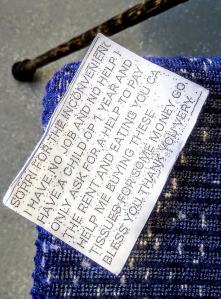 SORRI FOR THE INCONVENIENT
I HAVE NO JOB AND NO HELP I
HAVE A CHILD OF 1 YEAR AND
ONLY ASK FOR A HELP TO PAY
THE RENT AND EATING YOU CA
HELP ME BUYING THESE
TISSUES FOR SOME MONEY GO
BLESS YOU THANK YOU VERY